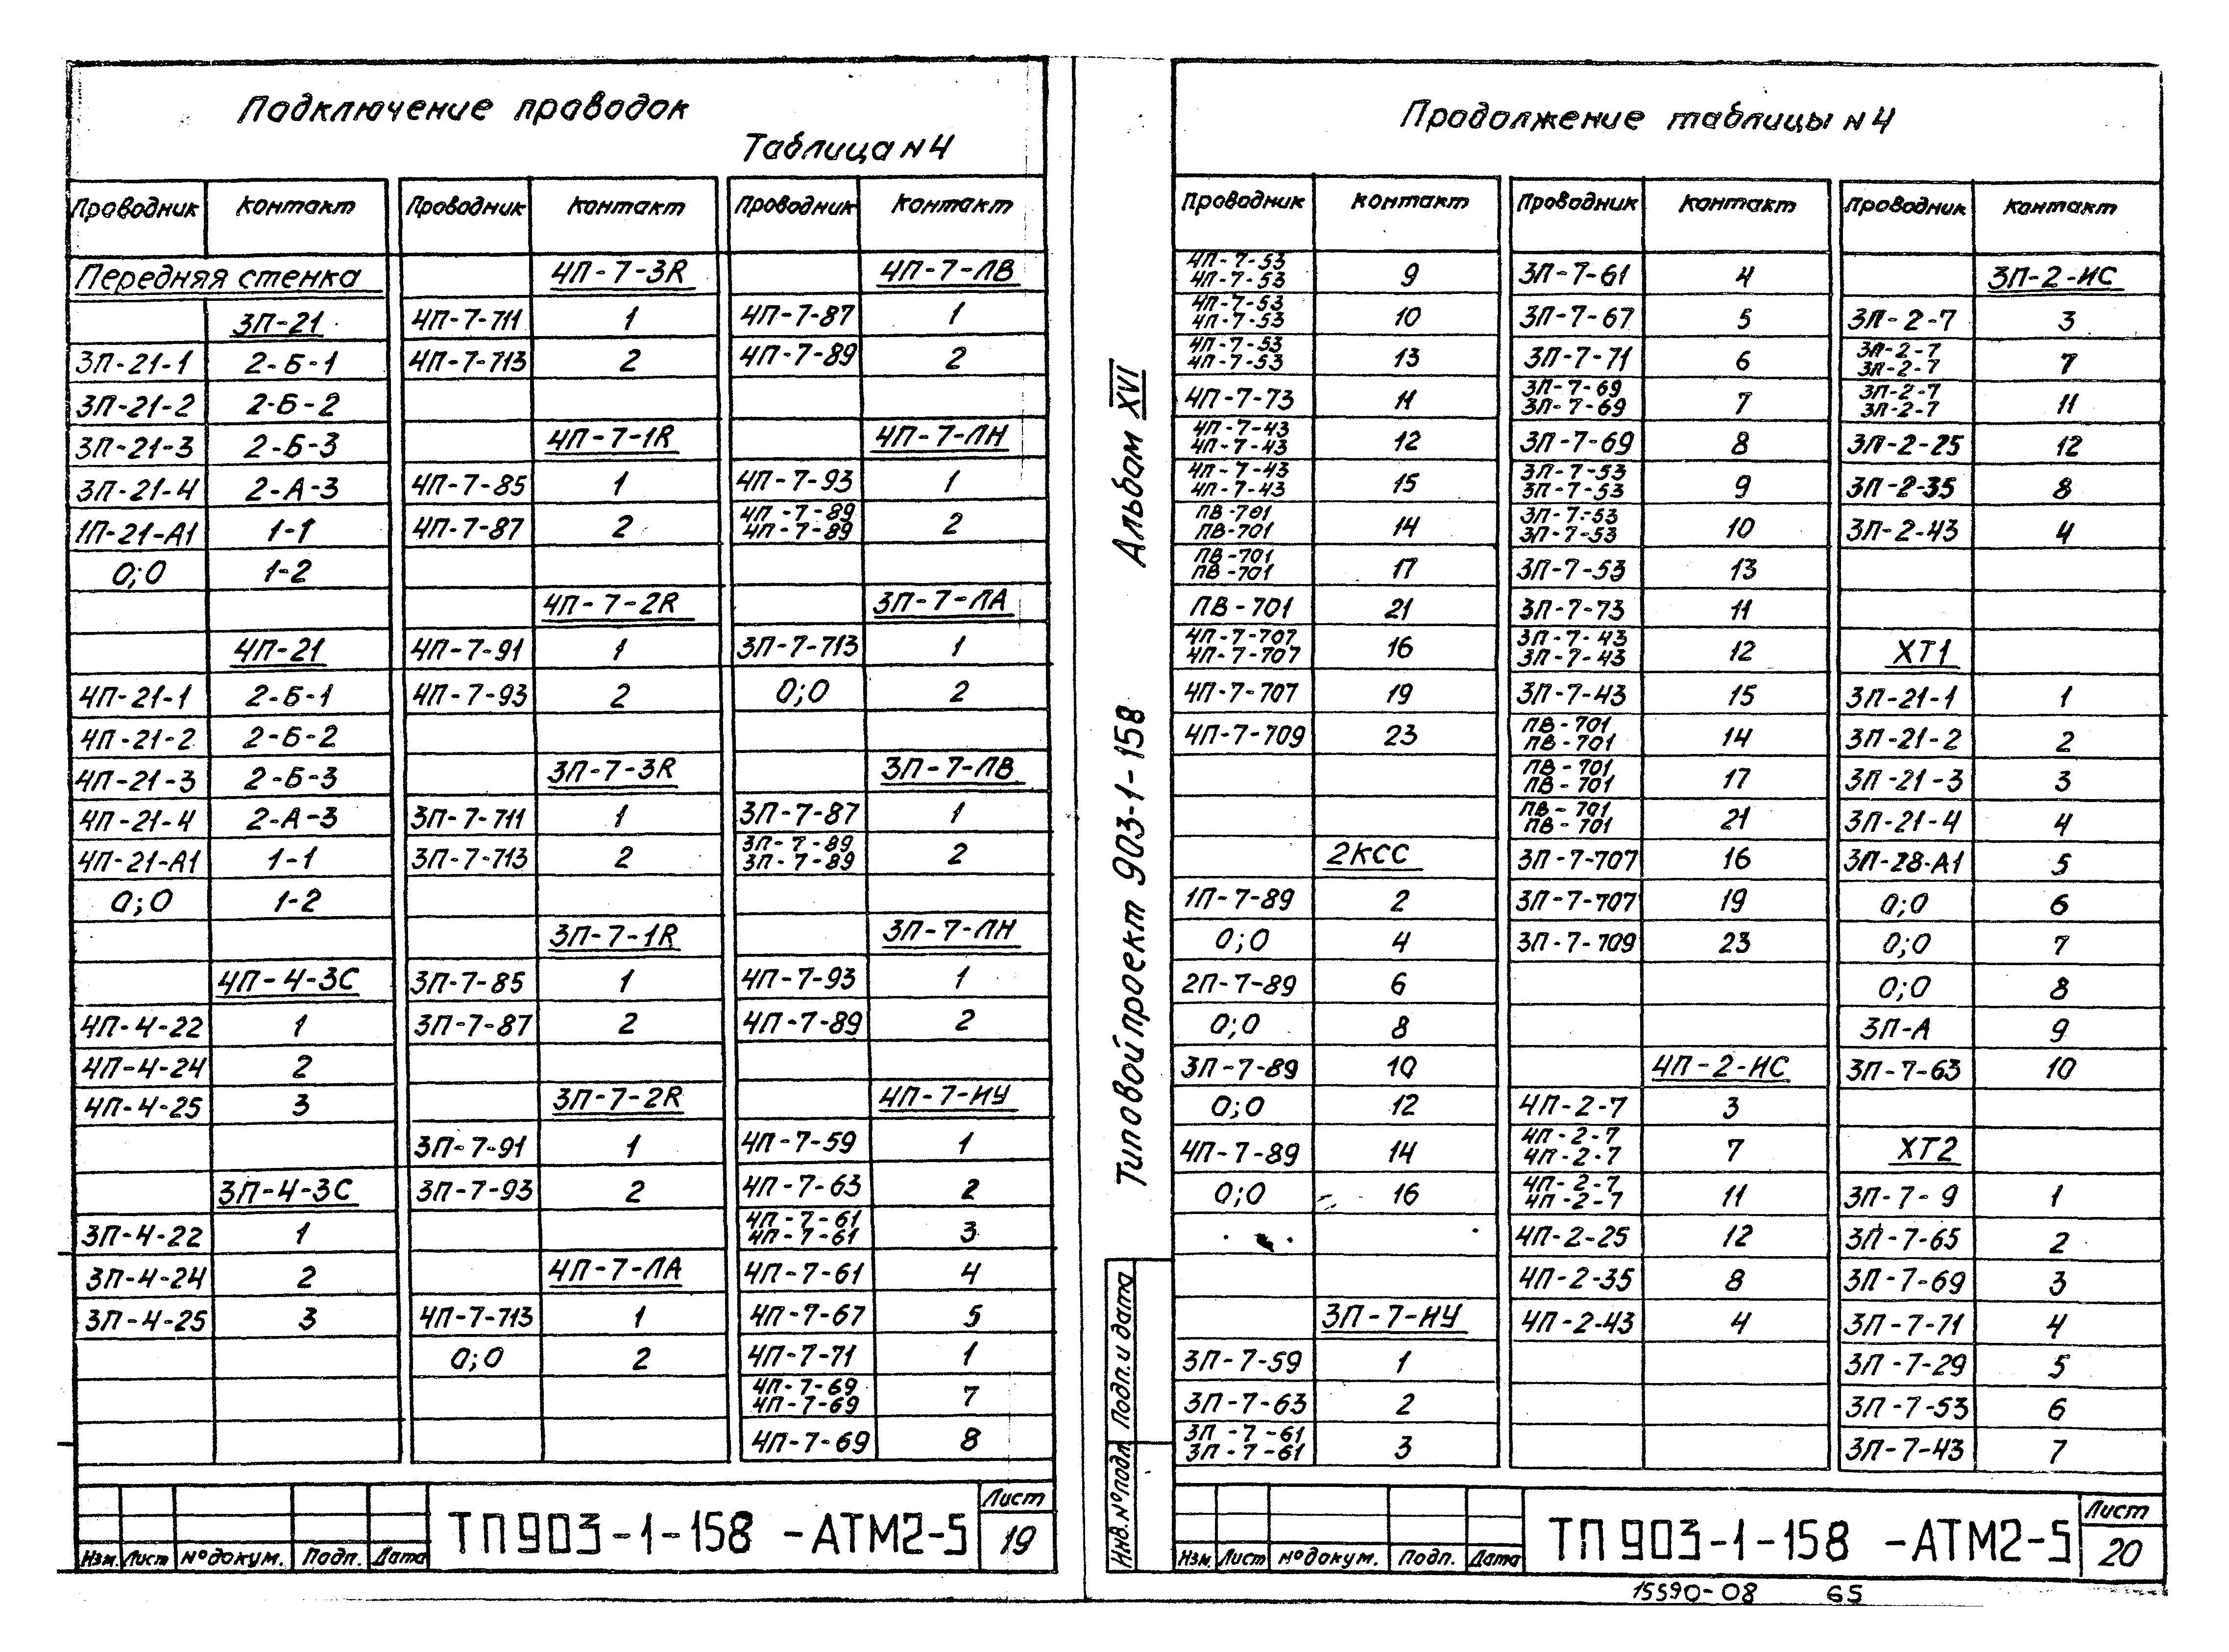 Подключение проводок
Таблица N4
Проводник Контакт
Передняя стенка
3П-21
3П-21-1 2-Б-1
3П-21-2 2-Б-2
3П-21-3 2-Б-3
3П-21-4 2-А-3
1П-21-А1 1-1
0;0 1-2
4П-21
4П-21-1 2-Б-1
4П-21-2 2-Б-2
4П-21-3 2-Б-3
4П-21-4 2-А-3
4П-21-А1 1-1
0;0 1-2
4П-4-3С
4П-4-22 1
4П-4-24 2
4П-4-25 3
3П-4-3С
3П-4-22 1
3П-4-24 2
3П-4-25 3
Проводник Контакт
4П-7-3R
4П-7-711 1
4П-7-713 2
4П-7-1R
4П-7-85 1
4П-7-87 2
4П-7-2R
4П-7-91 1
4П-7-93 2
3П-7-3R
3П-7-711 1
3П-7-713 2
3П-7-1R
3П-7-85 1
3П-7-87 2
3П-7-2R
3П-7-91 1
3П-7-93 2
4П-7-ЛА
4П-7-713 1
0;0 2
Проводник Контакт
4П-7-ЛВ
4П-7-87 1
4П-7-89 2
4П-7-ЛН
4П-7-93 1
4П-7-89
4П-7-89 2
3П-7-ЛА
3П-7-713 1
0;0 2
3П-7-ЛВ
3П-7-87 1
3П-7-89
3П-7-89 2
3П-7-ЛН
4П-7-93 1
4П-7-89 2
4П-7-ИУ
4П-7-59 1
4П-7-63 2
4П-7-61
4П-7-61 3
4П-7-61 4
4П-7-67 5
4П-7-71 1
4П-7-69
4П-7-69 7
4П-7-69 8
Изм. Лист № докум. Подп. Дата
ТП 903-1-158 -АТМ2-5
Лист
19
Альбом XVI
Типовой проект 903-1-158
Подп. и дата
Инв. № подл.
Продолжение таблицы N4
Проводник Контакт
4П-7-53
4П-7-53 9
4П-7-53
4П-7-53 10
4П-7-53
4П-7-53 13
4П-7-73 11
4П-7-43
4П-7-43 12
4П-7-43
4П-7-43 15
ПВ-701
ПВ-701 14
ПВ-701
ПВ-701 17
ПВ-701 21
4П-7-707
4П-7-707 16
4П-7-707 19
4П-7-709 23
2КСС
1П-7-89 2
0;0 4
2П-7-89 6
0;0 8
3П-7-89 10
0;0 12
4П-7-89 14
0;0 16
3П-7-ИУ
3П-7-59 1
3П-7-63 2
3П-7-61
3П-7-61 3
Проводник Контакт
3П-7-61 4
3П-7-67 5
3П-7-71 6
3П-7-69
3П-7-69 7
3П-7-69 8
3П-7-53
3П-7-53 9
3П-7-53
3П-7-53 10
3П-7-53 13
3П-7-73 11
3П-7-43
3П-7-43 12
3П-7-43 15
ПВ-701
ПВ-701 14
ПВ-701
ПВ-701 17
ПВ-701
ПВ-701 21
3П-7-707 16
3П-7-707 19
3П-7-709 23
4П-2-ИС
4П-2-7 3
4П-2-7
4П-2-7 7
4П-2-7
4П-2-7 11
4П-2-25 12
4П-2-35 8
4П-2-43 4
Проводник Контакт
3П-2-ИС
3П-2-7 3
3П-2-7
3П-2-7 7
3П-2-7
3П-2-7 11
3П-2-25 12
3П-2-35 8
3П-2-43 4
ХТ1
3П-21-1 1
3П-21-2 2
3П-21-3 3
3П-21-4 4
3П-28-А1 5
0;0 6
0;0 7
0;0 8
3П-А 9
3П-7-63 10
ХТ2
3П-7-9 1
3П-7-65 2
3П-7-69 3
3П-7-71 4
3П-7-29 5
3П-7-53 6
3П-7-43 7
Изм. Лист № докум. Подп. Дата
ТП 903-1-158 -АТМ2-5
Лист
20
15590-08 65